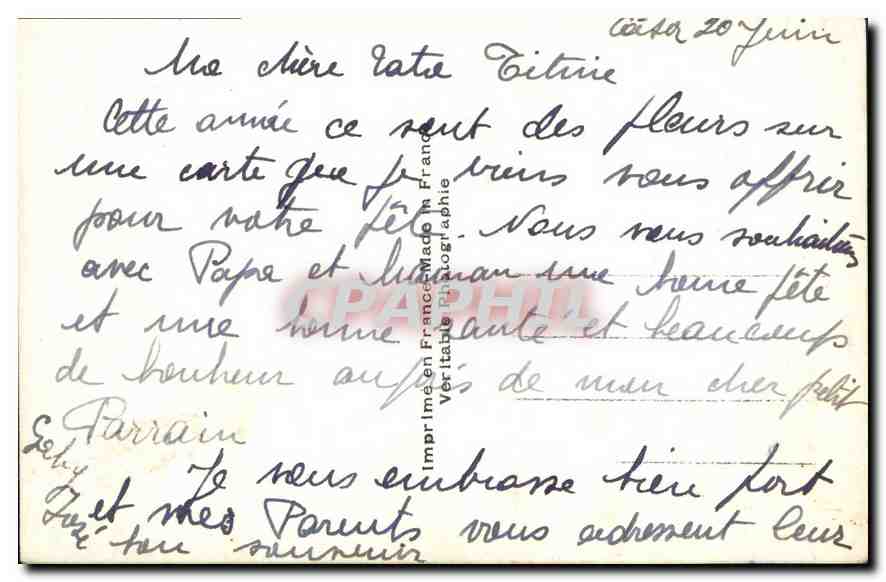 20 Juin
Ma chère Tata Titine
Cette année ce sont des fleurs sur
une carte que je viens vous offrir
pour votre fête. Nous vous souhaitons
avec Papa et Maman une bonne fête
et une bonne santé et beaucoup
de bonheur auprès de mon cher petit
Parrain
Je vous embrasse bien fort
et mes Parents vous adressent leur
bon souvenir
Gaby
Imprimé en France-Made in France
Véritable Photographie
CPAPHIL